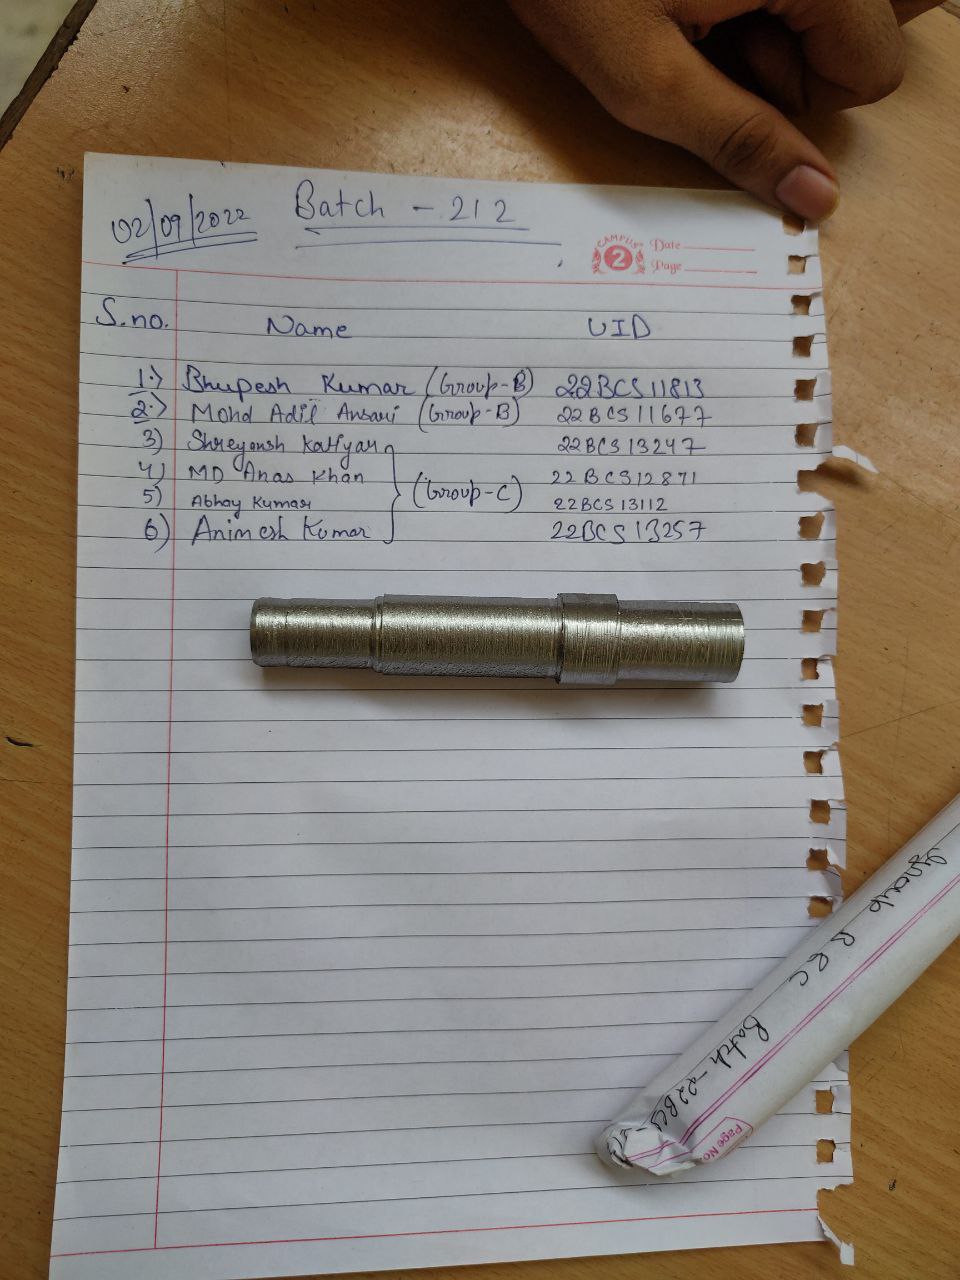 02/09/2022 Batch - 212
CAMPUS 2 Date
Page
S.no. Name UID
1.) Bhupesh Kumar (Group-B) 22BCS11813
2.) Mohd Adil Ansari (Group-B) 22BCS11677
3) Shreyansh Katiyar 22BCS13247
4) MD Anas Khan 22BCS12871
(Group-C)
5) Abhay Kumar 22BCS13112
6) Animesh Kumar 22BCS13257
Group B & C
Batch - 22BCS
Page No.